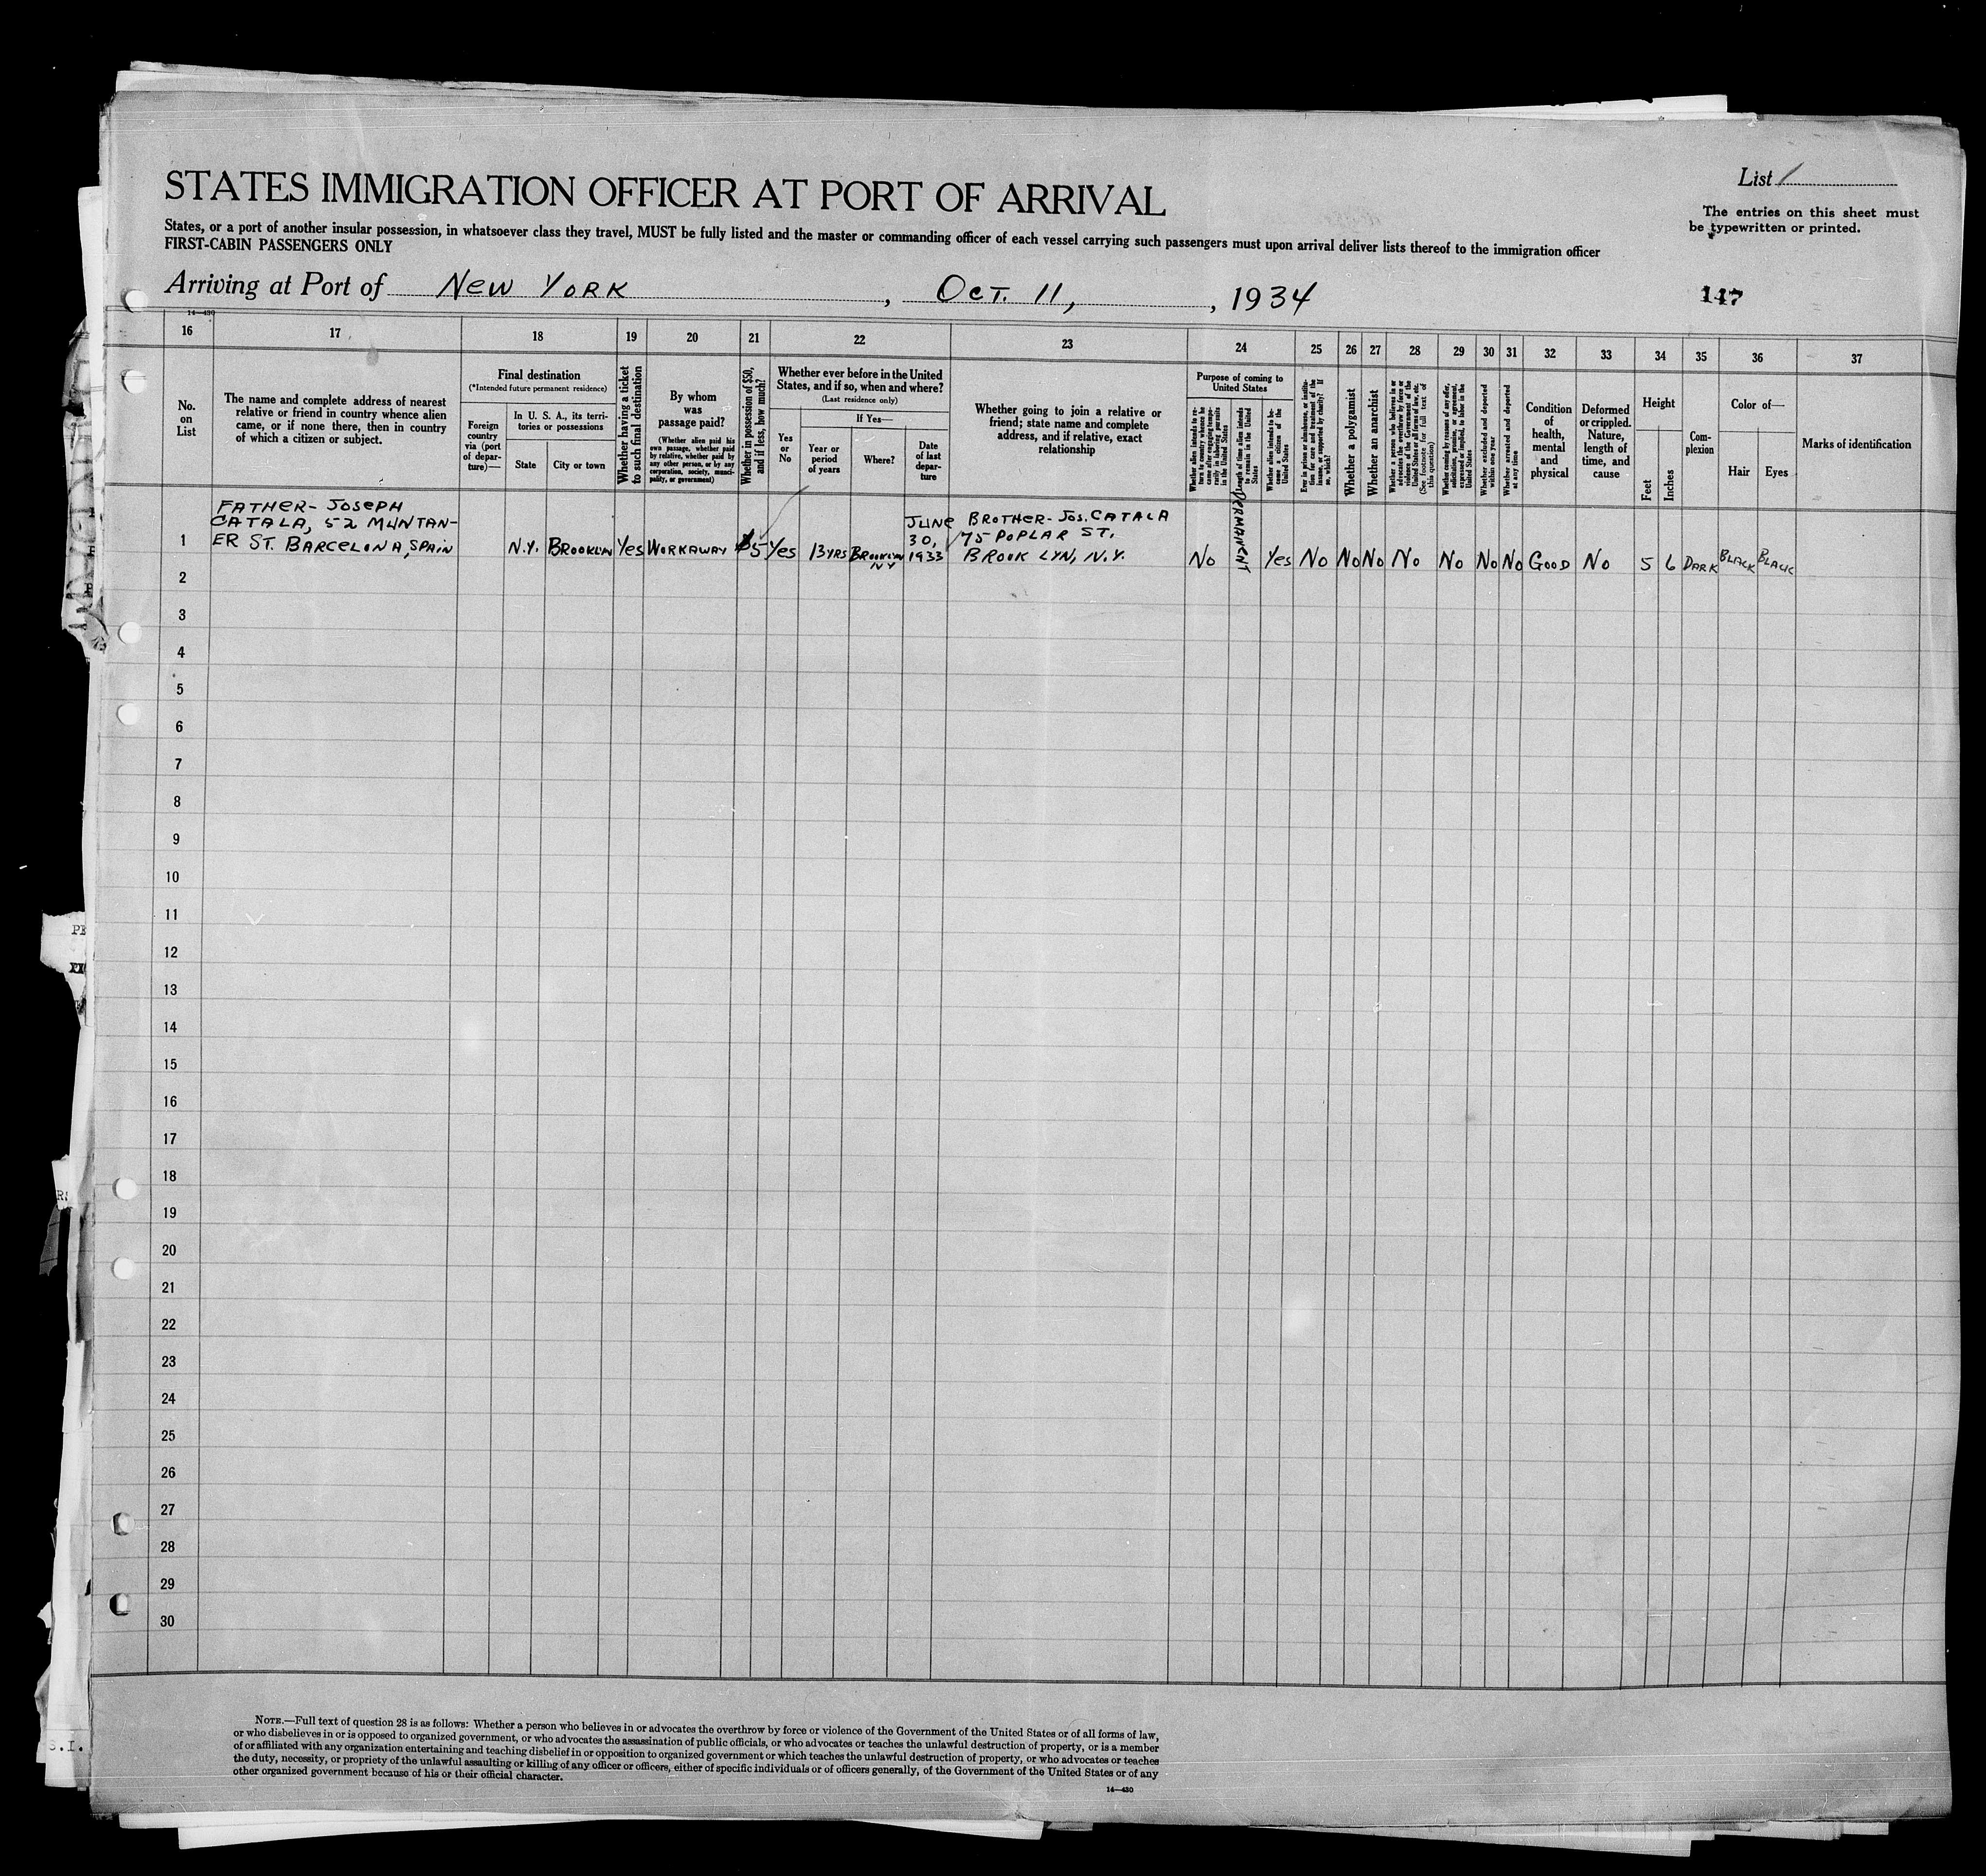 STATES IMMIGRATION OFFICER AT PORT OF ARRIVAL
List 1
The entries on this sheet must
be typewritten or printed.
States, or a port of another insular possession, in whatsoever class they travel, MUST be fully listed and the master or commanding officer of each vessel carrying such passengers must upon arrival deliver lists thereof to the immigration officer
FIRST-CABIN PASSENGERS ONLY
Arriving at Port of New York, Oct. 11, , 1934
147
14—430
16 17 18 19 20 21 22 23 24 25 26 27 28 29 30 31 32 33 34 35 36 37
No.
on
List
The name and complete address of nearest
relative or friend in country whence alien
came, or if none there, then in country
of which a citizen or subject.
Final destination
(*Intended future permanent residence)
Foreign
country
via (port
of depar-
ture)—
In U. S. A., its terri-
tories or possessions
State
City or town
Whether having a ticket
to such final destination
By whom
was
passage paid?
(Whether alien paid his
own passage, whether paid
by relative, whether paid by
any other person, or by any
corporation, society, munici-
pality, or government)
Whether in possession of $50,
and if less, how much?
Whether ever before in the United
States, and if so, when and where?
(Last residence only)
Yes
or
No
If Yes—
Year or
period
of years
Where?
Date
of last
depar-
ture
Whether going to join a relative or
friend; state name and complete
address, and if relative, exact
relationship
Purpose of coming to
United States
Whether alien intends to re-
turn to country whence he
came after engaging tempo-
rarily in laboring pursuits
in the United States
Length of time alien intends
to remain in the United
States
Whether alien intends to be-
come a citizen of the
United States
Ever in prison or almshouse, or institu-
tion for care and treatment of the
insane, or supported by charity? If
so, which?
Whether a polygamist
Whether an anarchist
Whether a person who believes in or
advocates the overthrow by force or
violence of the Government of the
United States or all forms of law, etc.
(See footnote for full text of
this question)
Whether coming by reason of any offer,
solicitation, promise, or agreement,
expressed or implied, to labor in the
United States
Whether excluded and deported
within one year
Whether arrested and deported
at any time
Condition
of
health,
mental
and
physical
Deformed
or crippled.
Nature,
length of
time, and
cause
Height
Feet
Inches
Com-
plexion
Color of—
Hair
Eyes
Marks of identification
FATHER- JOSEPH
CATALA, 52 MUNTAN-
ER ST. BARCELONA, SPAIN
1 N.Y. BROOKLYN Yes WORKAWAY $5 Yes 13 YRS BROOKLYN NY
JUNE
30,
1933
BROTHER- JOS. CATALA
75 POPLAR ST.
BROOKLYN, N.Y.
No PERMANENT Yes No No No No No No No GOOD No 5 6 DARK BLACK BLACK
2
3
4
5
6
7
8
9
10
11
12
13
14
15
16
17
18
19
20
21
22
23
24
25
26
27
28
29
30
NOTE.—Full text of question 28 is as follows: Whether a person who believes in or advocates the overthrow by force or violence of the Government of the United States or of all forms of law,
or who disbelieves in or is opposed to organized government, or who advocates the assassination of public officials, or who advocates or teaches the unlawful destruction of property, or is a member
of or affiliated with any organization entertaining and teaching disbelief in or opposition to organized government or which teaches the unlawful destruction of property, or who advocates or teaches
the duty, necessity, or propriety of the unlawful assaulting or killing of any officer or officers, either of specific individuals or of officers generally, of the Government of the United States or of any
other organized government because of his or their official character.
14—430